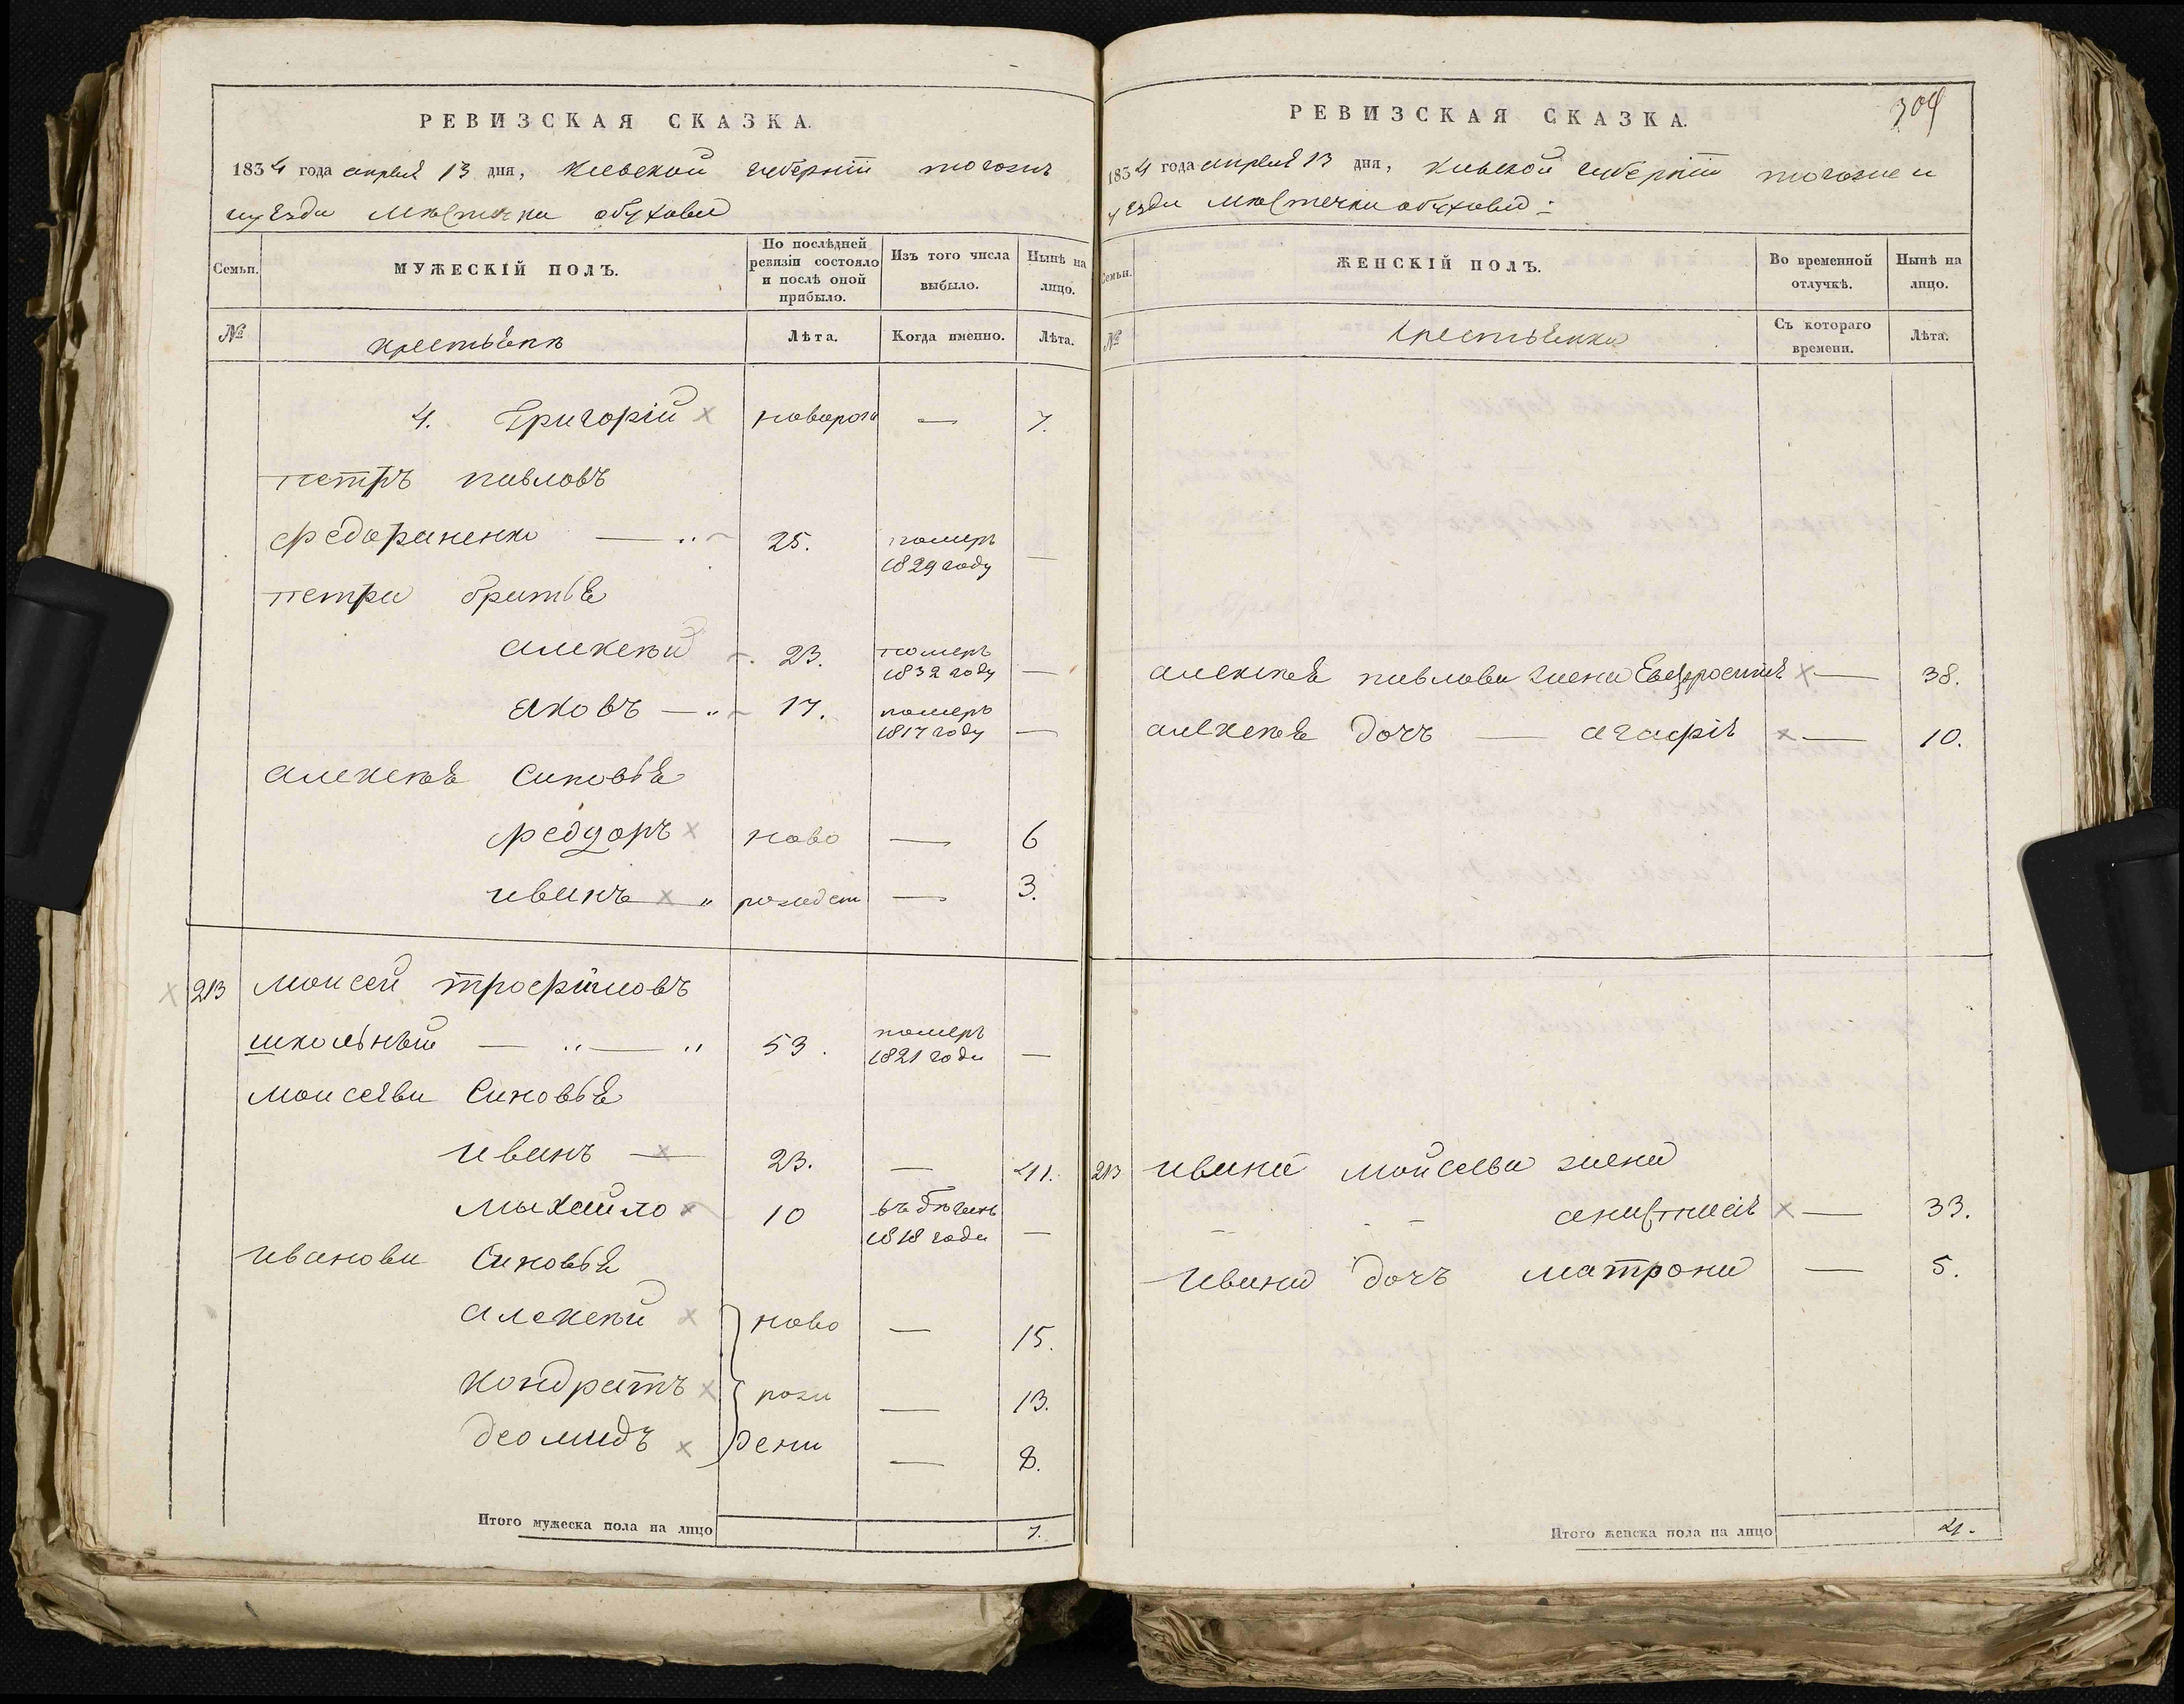 РЕВИЗСКАЯ СКАЗКА.
1834 года апреля 13 дня, Киевской губернии тогожъ
уезда местечка обухова
Семьи.
МУЖЕСКІЙ ПОЛЪ.
По послѣдней ревизіи состояло и послѣ оной прибыло.
Изъ того числа выбыло.
Нынѣ на лицо.
№
крестьянъ
Лѣта.
Когда именно.
Лѣта.
4. Григорій новорож — 7.
петръ павловъ
федориненко — 25. померъ 1829 году —
петра братья
алексѣй 23. померъ 1832 году —
яковъ — 17. померъ 1817 году —
алексѣя синовья
федоръ ново — 6
иванъ рожден — 3.
213 моисей трофимовъ
школьный — 53. померъ 1821 года —
моисеева синовья
иванъ — 23. — 41.
михайло 10 въ бѣгахъ 1818 года —
иванова синовья
алексѣй ново — 15.
кондратъ рож — 13.
деомидъ дени — 8.
Итого мужеска пола на лицо 7.
304
РЕВИЗСКАЯ СКАЗКА.
1834 года апреля 13 дня, Киевской губерніи тогоже
уезда местечка обухова
Семьи.
ЖЕНСКІЙ ПОЛЪ.
Во временной отлучкѣ.
Нынѣ на лицо.
№
крестьянки
Съ котораго времени.
Лѣта.
алексѣя павлова жена Евфросинія — 38.
алексѣя дочъ — агафія — 10.
213 ивана мойсеева жена
анастасія — 33.
ивана дочъ матрона — 5.
Итого женска пола на лицо 4.